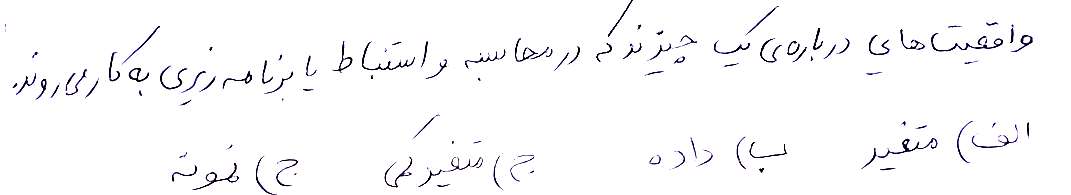 واقعیت‌هایی درباره‌ی یک چیزند که در محاسبه و استنباط یا برنامه ریزی به کار می‌روند.
الف) متغیر ب) داده ج) متغیر کمی ج) نمونه